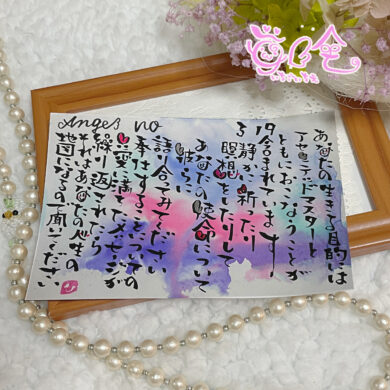 Angel no
193
あなたの生きる目的には
アセンデッドマスターと
ともにおこなうことが
含まれています!
静かに祈ったり
瞑想をしたりして
あなたの使命について
彼らに
語り合てみてください
奉仕することについての
愛に満てたメッセージが
繰り返されたら
それはあなたの人生の
地図になるので聞いてください